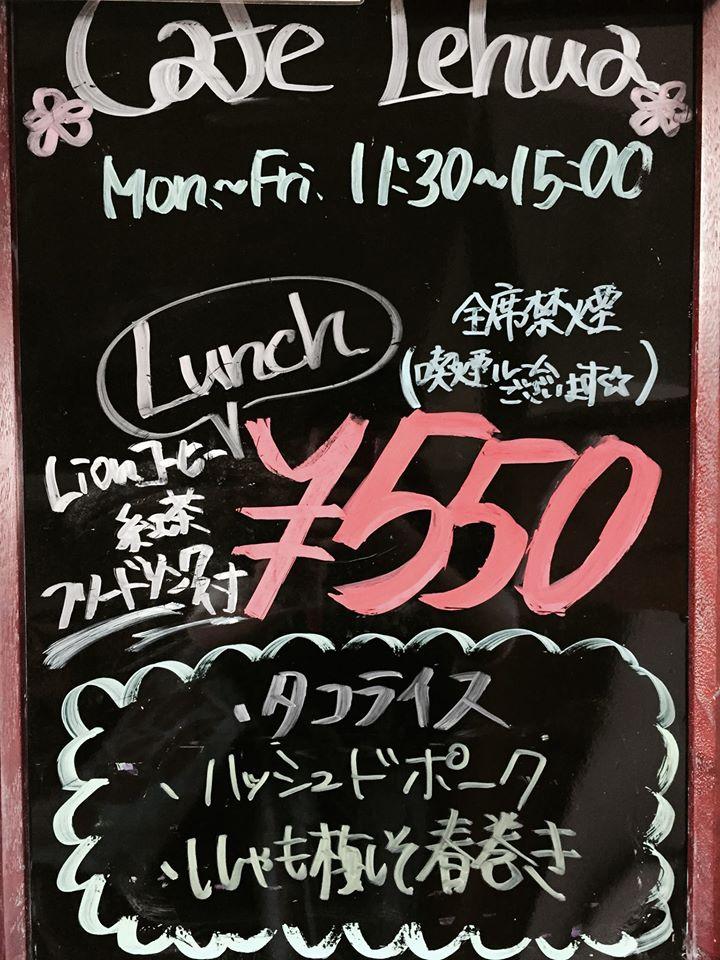 Cafe Lehua
Mon.~Fri. 11:30~15:00
Lunch
全席禁煙
(喫煙ルーム
ございます☆)
Lionコーヒー
紅茶
フリードリンク付
¥550
・タコライス
・ハッシュドポーク
・ししゃも梅しそ春巻き